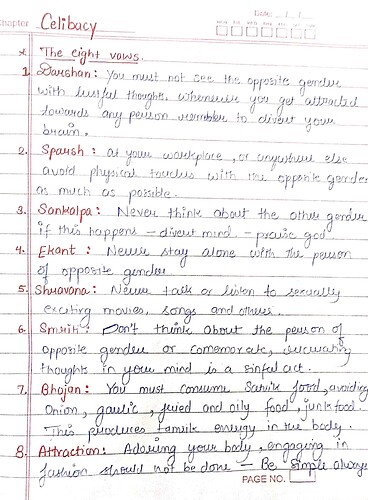 Date: / /
Chapter Celibacy
MON TUE WED THU FRI SAT SUN
* The eight vows.
1. Darshan: You must not see the opposite gender
with lustful thoughts. whenever you get attracted
towards any person remember to divert your
brain.
2. Sparsh: at your workplace, or anywhere else
avoid physical touches with the opposite gender
as much as possible.
3. Sankalpa: Never think about the other gender
if this happens – divert mind. – praise god
4. Ekant: Never stay alone with the person
of opposite gender.
5. Shravana: Never talk or listen to sexually
exciting movies, songs and others.
6. Smriti: Don't think about the person of
opposite gender or comemorate,
thoughts in your mind is a sinful act.
7. Bhojan: You must consume Satvik food, avoiding
Onion, garlic, fried and oily food, junk food.
This produces tamsik energy in the body.
8. Attraction: Adoring your body, engaging in
fashion should not be done – Be simple always
PAGE NO.